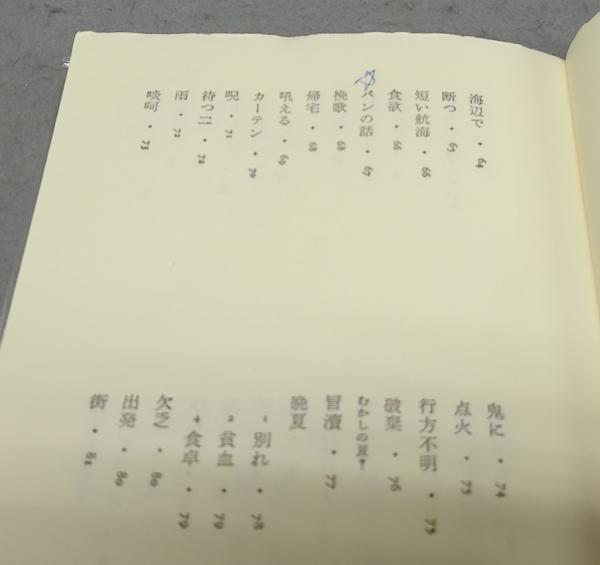 海辺で・64
断つ・65
短い航海・66
食欲・66
パンの話・67
挽歌・68
帰宅・68
吼える・69
カーテン・70
呪・71
待つ二・72
雨・72
啖呵・73
鬼に・74
点火・75
行方不明・75
破棄・76
むかしの夏
冒瀆・77
晩夏
1 別れ・78
2 貧血・79
4 食卓・79
欠乏・80
出発・80
街・81